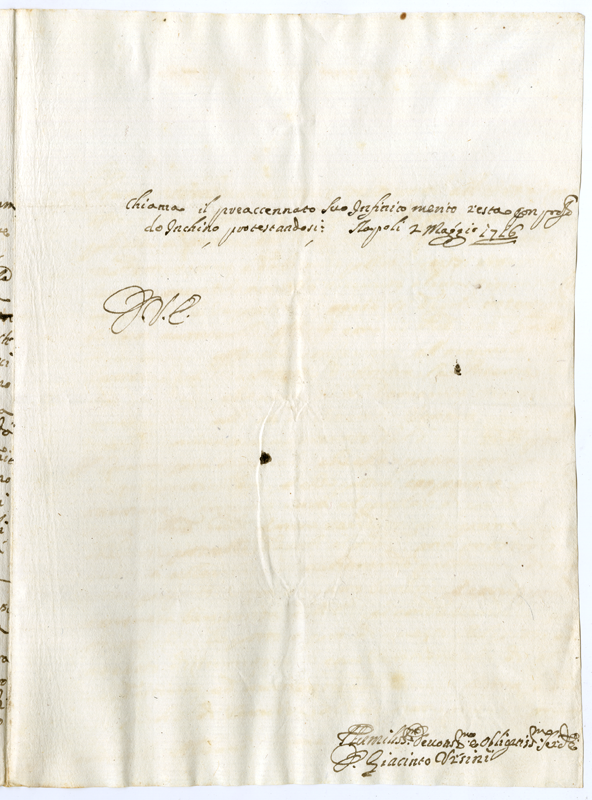 chiama il preaccennato suo Infinito merito resta con profo
do Inchino protestandosi: Napoli 2 Maggio 1716
D. V. E.
Humiliss: Deuotis:mo e Obligatis:mo Ser:e
F. Giacinto Ursini